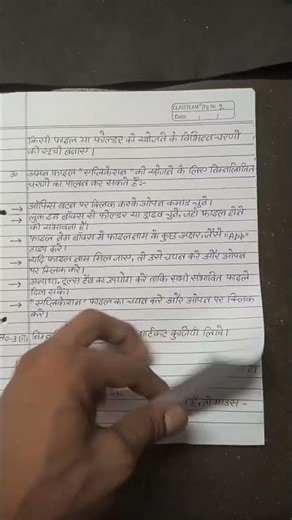 CLASSTEAM Pg. No. 2
Date / /
किसी फाइल या फोल्डर को खोजने के विभिन्न चरणो
की सूची बनाइए।
उ० अमन फाइल "एप्लिकेशन" को खोजने के लिए निम्नलिखित
चरणों का पालन कर सकते हैं:-
→ ऑफिस बटन पर क्लिक करके ओपन कमांड चुने।
→ लुक इन बॉक्स से फोल्डर या ड्राइव चुने, जहाँ फाइल होने
की संभावना है।
→ फाइल नेम बॉक्स में फाइल नाम के कुछ अक्षर, जैसे "App"
टाइप करे।
→ यदि फाइल नाम मिल जाए, तो उसे चयन करे और ओपन
पर क्लिक करे।
→ अन्यथा, टूल्स टैब का उपयोग करे ताकि सभी संभावित फाइले
दिख सके।
→ "एप्लिकेशन" फाइल का चयन करे और ओपन पर क्लिक
करे।
शॉर्टकट कुंजियाँ लिखे।
माउस -